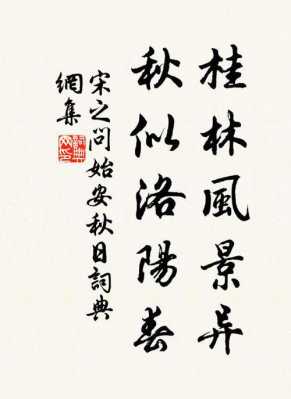 桂林風景异
秋似洛陽春
宋之问始安秋日詞典
網集